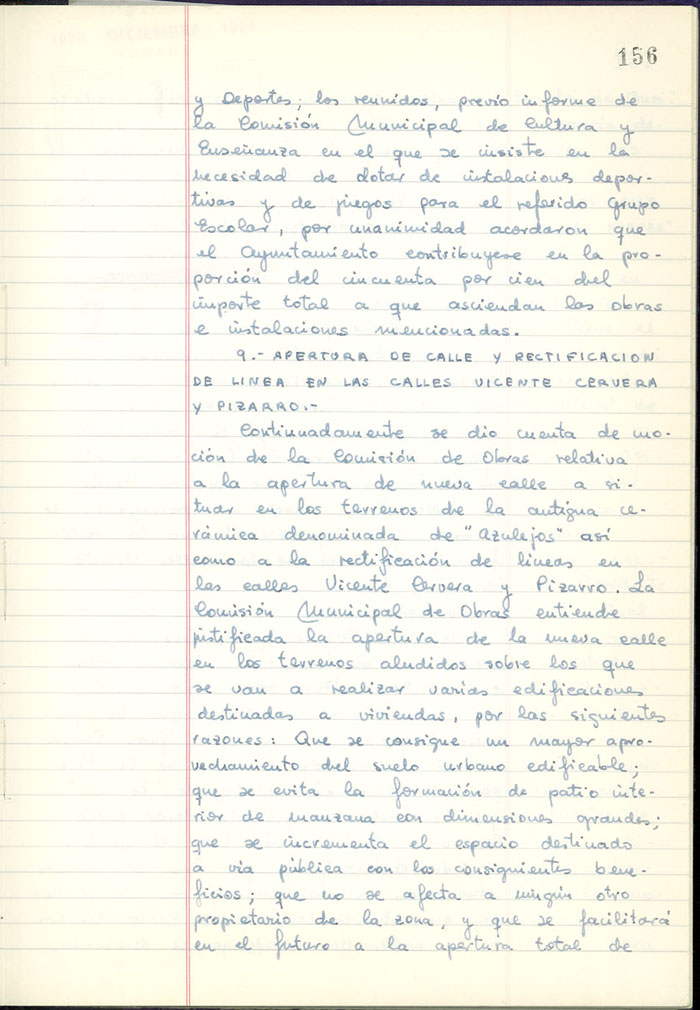 156
y Deportes; los reunidos, previo informe de
la Comisión Municipal de Cultura y
Enseñanza en el que se insiste en la
necesidad de dotar de instalaciones depor-
tivas y de juegos para el referido Grupo
Escolar, por unanimidad acordaron que
el Ayuntamiento contribuyese en la pro-
porción del cincuenta por cien del
importe total a que asciendan las obras
e instalaciones mencionadas.
9.- APERTURA DE CALLE Y RECTIFICACION
DE LINEA EN LAS CALLES VICENTE CERVERA
Y PIZARRO.-
Continuadamente se dio cuenta de mo-
ción de la Comisión de Obras relativa
a la apertura de nueva calle a si-
tuar en los terrenos de la antigua ce-
rámica denominada de "Azulejos" así
como a la rectificación de lineas en
las calles Vicente Cervera y Pizarro. La
Comisión Municipal de Obras entiende
justificada la apertura de la nueva calle
en los terrenos aludidos sobre los que
se van a realizar varias edificaciones
destinadas a viviendas, por las siguientes
razones: Que se consigue un mayor apro-
vechamiento del suelo urbano edificable;
que se evita la formación de patio inte-
rior de manzana con dimensiones grandes;
que se incrementa el espacio destinado
a vía pública con los consiguientes bene-
ficios; que no se afecta a ningún otro
propietario de la zona, y que se facilitará
en el futuro a la apertura total de